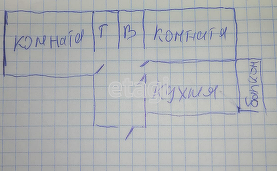 комната Т В комната
кухня
балкон